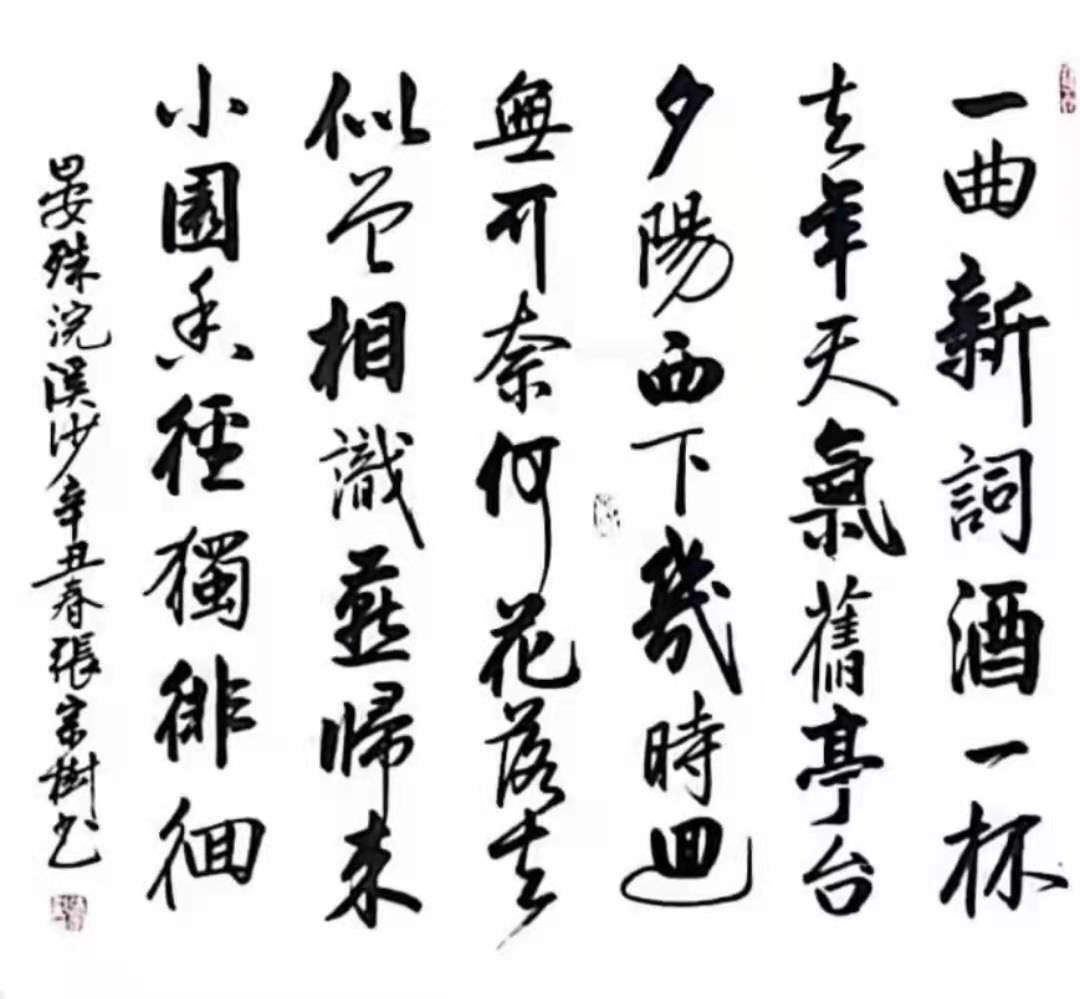 一曲新詞酒一杯
去年天氣舊亭台
夕陽西下幾時迴
無可奈何花落去
似曾相識燕歸來
小園香徑獨徘徊
晏殊浣溪沙辛丑春張宗樹书